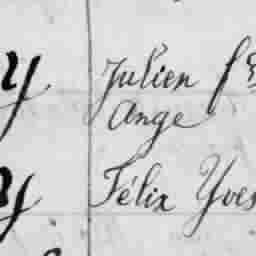 y Julien f
Ange
y Félix Yves